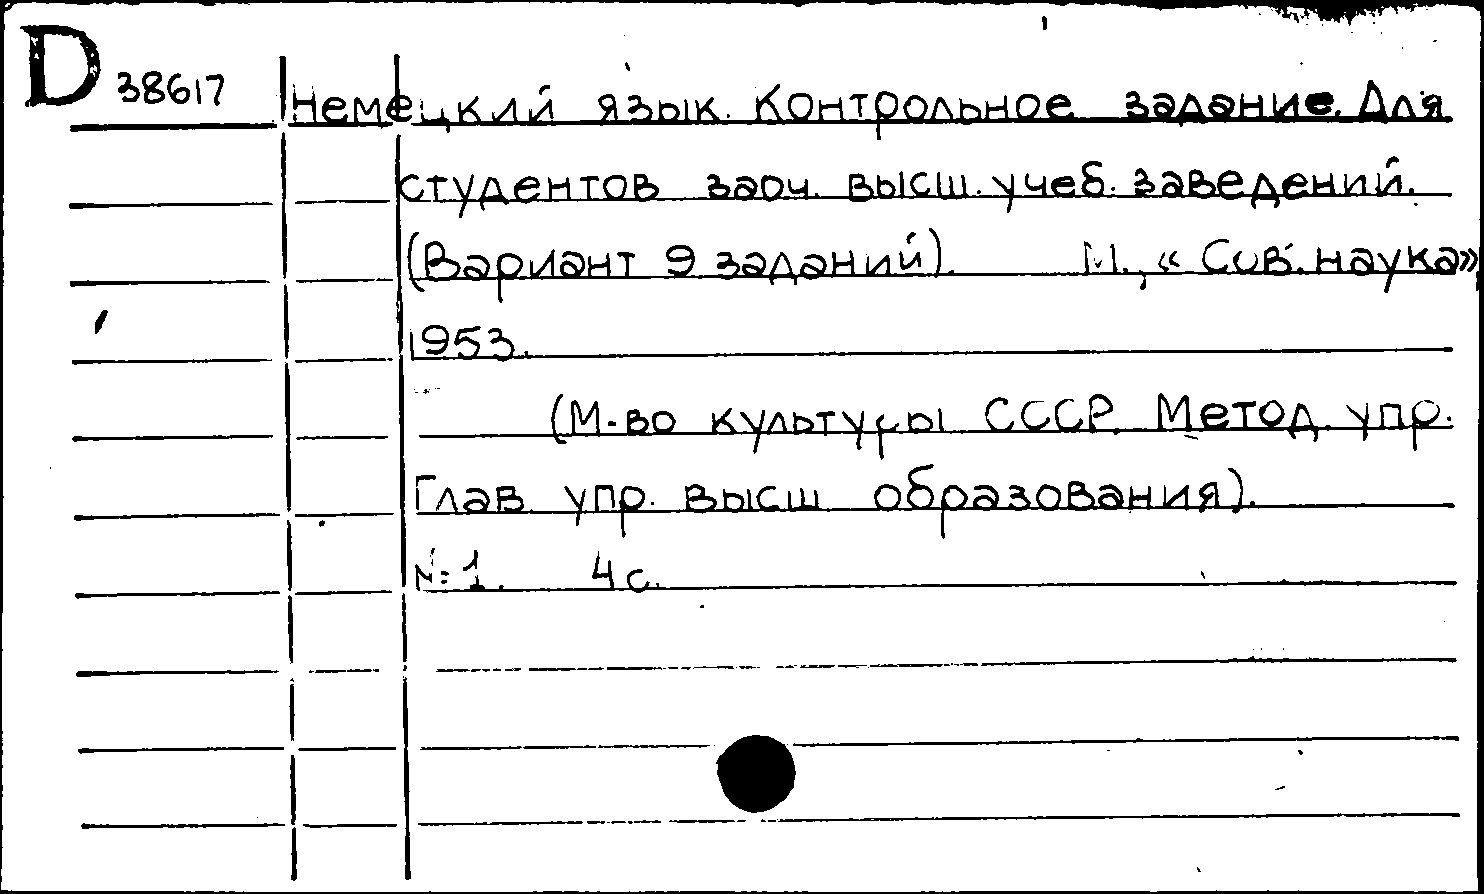 D 38617 Немецкий язык. Контрольное задание. Для
студентов заоч. высш. учеб. заведений.
(Вариант 9 заданий). М., «Сов. наука»
1953.
(М-во культуры СССР. Метод. упр.
Глав. упр. высш образования).
№1. 4 с.